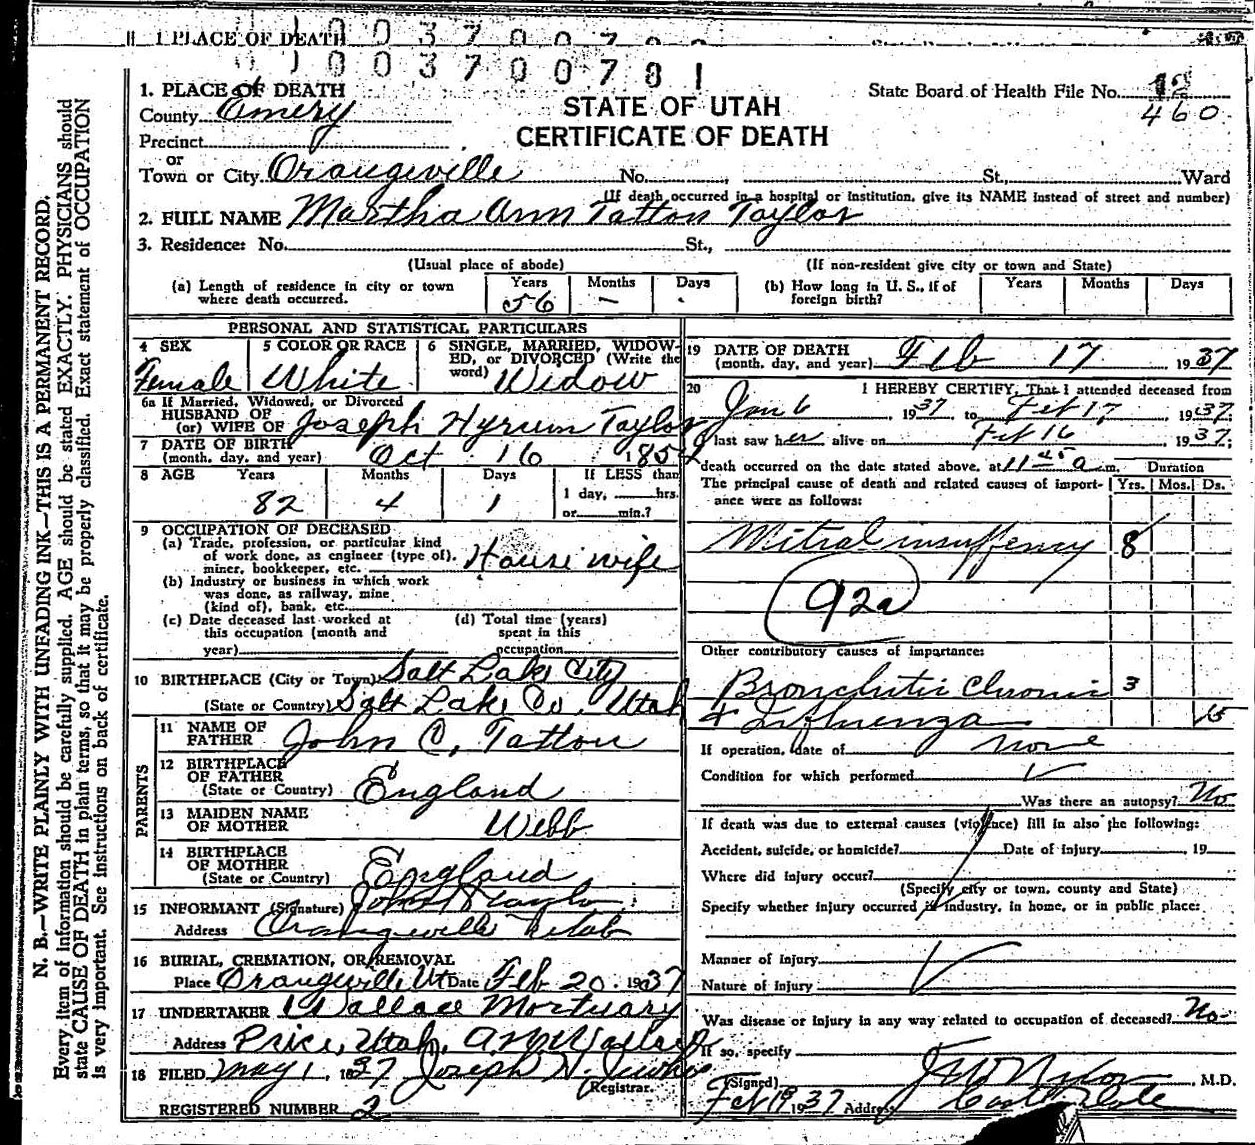 1 PLACE OF DEATH
003700701
1. PLACE OF DEATH
County Emery
Precinct
or
Town or City Orangeville No. St., Ward
STATE OF UTAH
CERTIFICATE OF DEATH
State Board of Health File No. 12
460
(If death occurred in a hospital or institution, give its NAME instead of street and number)
2. FULL NAME Martha Ann Tatton Taylor
3. Residence: No. St.,
(Usual place of abode) (If non-resident give city or town and State)
(a) Length of residence in city or town where death occurred. Years 56 Months – Days
(b) How long in U. S., if of foreign birth? Years Months Days
PERSONAL AND STATISTICAL PARTICULARS
4 SEX Female
5 COLOR OR RACE White
6 SINGLE, MARRIED, WIDOWED, or DIVORCED (Write the word) Widow
6a If Married, Widowed, or Divorced
HUSBAND OF
(or) WIFE OF Joseph Hyrum Taylor
7 DATE OF BIRTH
(month, day, and year) Oct 16 1854
8 AGE Years 82 Months 4 Days 1 If LESS than
1 day, hrs.
or min.?
9 OCCUPATION OF DECEASED
(a) Trade, profession, or particular kind
of work done, as engineer (type of).
miner, bookkeeper, etc. House wife
(b) Industry or business in which work
was done, as railway, mine
(kind of), bank, etc.
(c) Date deceased last worked at
this occupation (month and
year)
(d) Total time (years)
spent in this
occupation
10 BIRTHPLACE (City or Town) Salt Lake City
(State or Country) Salt Lake Co. Utah
PARENTS
11 NAME OF FATHER John C. Tatton
12 BIRTHPLACE OF FATHER
(State or Country) England
13 MAIDEN NAME OF MOTHER Webb
14 BIRTHPLACE OF MOTHER
(State or Country) England
15 INFORMANT (Signature) John Taylor
Address Orangeville Utah
16 BURIAL, CREMATION, OR REMOVAL
Place Orangeville Ut Date Feb 20 1937
17 UNDERTAKER Wallace Mortuary
Address Price, Utah.
18 FILED May 1, 1937 Joseph H.
Registrar.
REGISTERED NUMBER 2
19 DATE OF DEATH
(month, day, and year) Feb 17 1937
20 I HEREBY CERTIFY, That I attended deceased from
Jan 6 1937 to Feb 17, 1937
I last saw her alive on Feb 16 1937
death occurred on the date stated above, at 11 45 a m. Duration
The principal cause of death and related causes of importance were as follows: Yrs. Mos. Ds.
Mitral insuffency 8
92a
Other contributory causes of importance:
Bronchitis Chronic 3
+ Influenza 15
If operation, date of none
Condition for which performed
Was there an autopsy? No
If death was due to external causes (violence) fill in also the following:
Accident, suicide, or homicide? Date of injury 19
Where did injury occur?
(Specify city or town, county and State)
Specify whether injury occurred in industry, in home, or in public place:
Manner of Injury
Nature of Injury
Was disease or injury in any way related to occupation of deceased? No
If so, specify
(Signed) M.D.
Feb 19 1937 Address Castle Dale
N. B.—WRITE PLAINLY WITH UNFADING INK—THIS IS A PERMANENT RECORD.
Every item of information should be carefully supplied. AGE should be stated EXACTLY. PHYSICIANS should
state CAUSE OF DEATH in plain terms, so that it may be properly classified. Exact statement of OCCUPATION
is very important. See instructions on back of certificate.